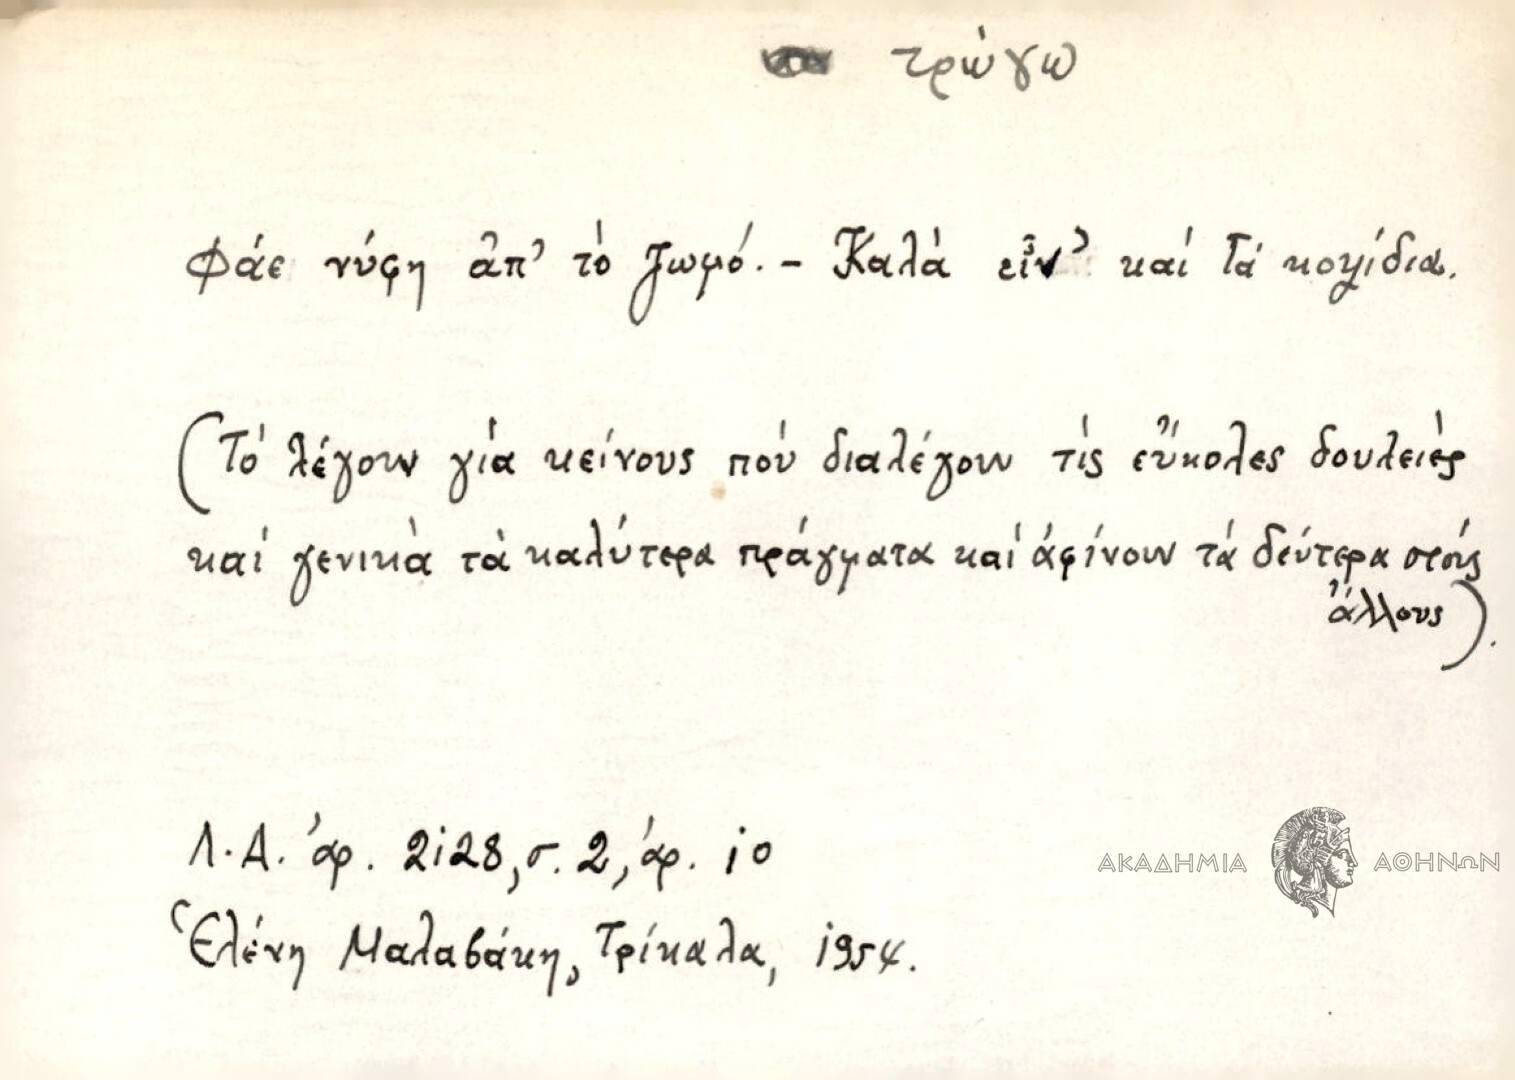 τρώγω
Φάε νύφη ἀπ' τὸ ζωμό. - Καλὰ εἶν' καὶ τὰ κοψίδια.
(Τὸ λέγουν γιὰ κείνους ποὺ διαλέγουν τὶς εὔκολες δουλειὲς
καὶ γενικὰ τὰ καλύτερα πράγματα καὶ ἀφίνουν τὰ δεύτερα στοὺς
ἄλλους).
Λ.Α. ἀρ. 2128, σ. 2, ἀρ. 10
Ἑλένη Μαλαβάκη, Τρίκαλα, 1954.
ΑΚΑΔΗΜΙΑ ΑΘΗΝΩΝ